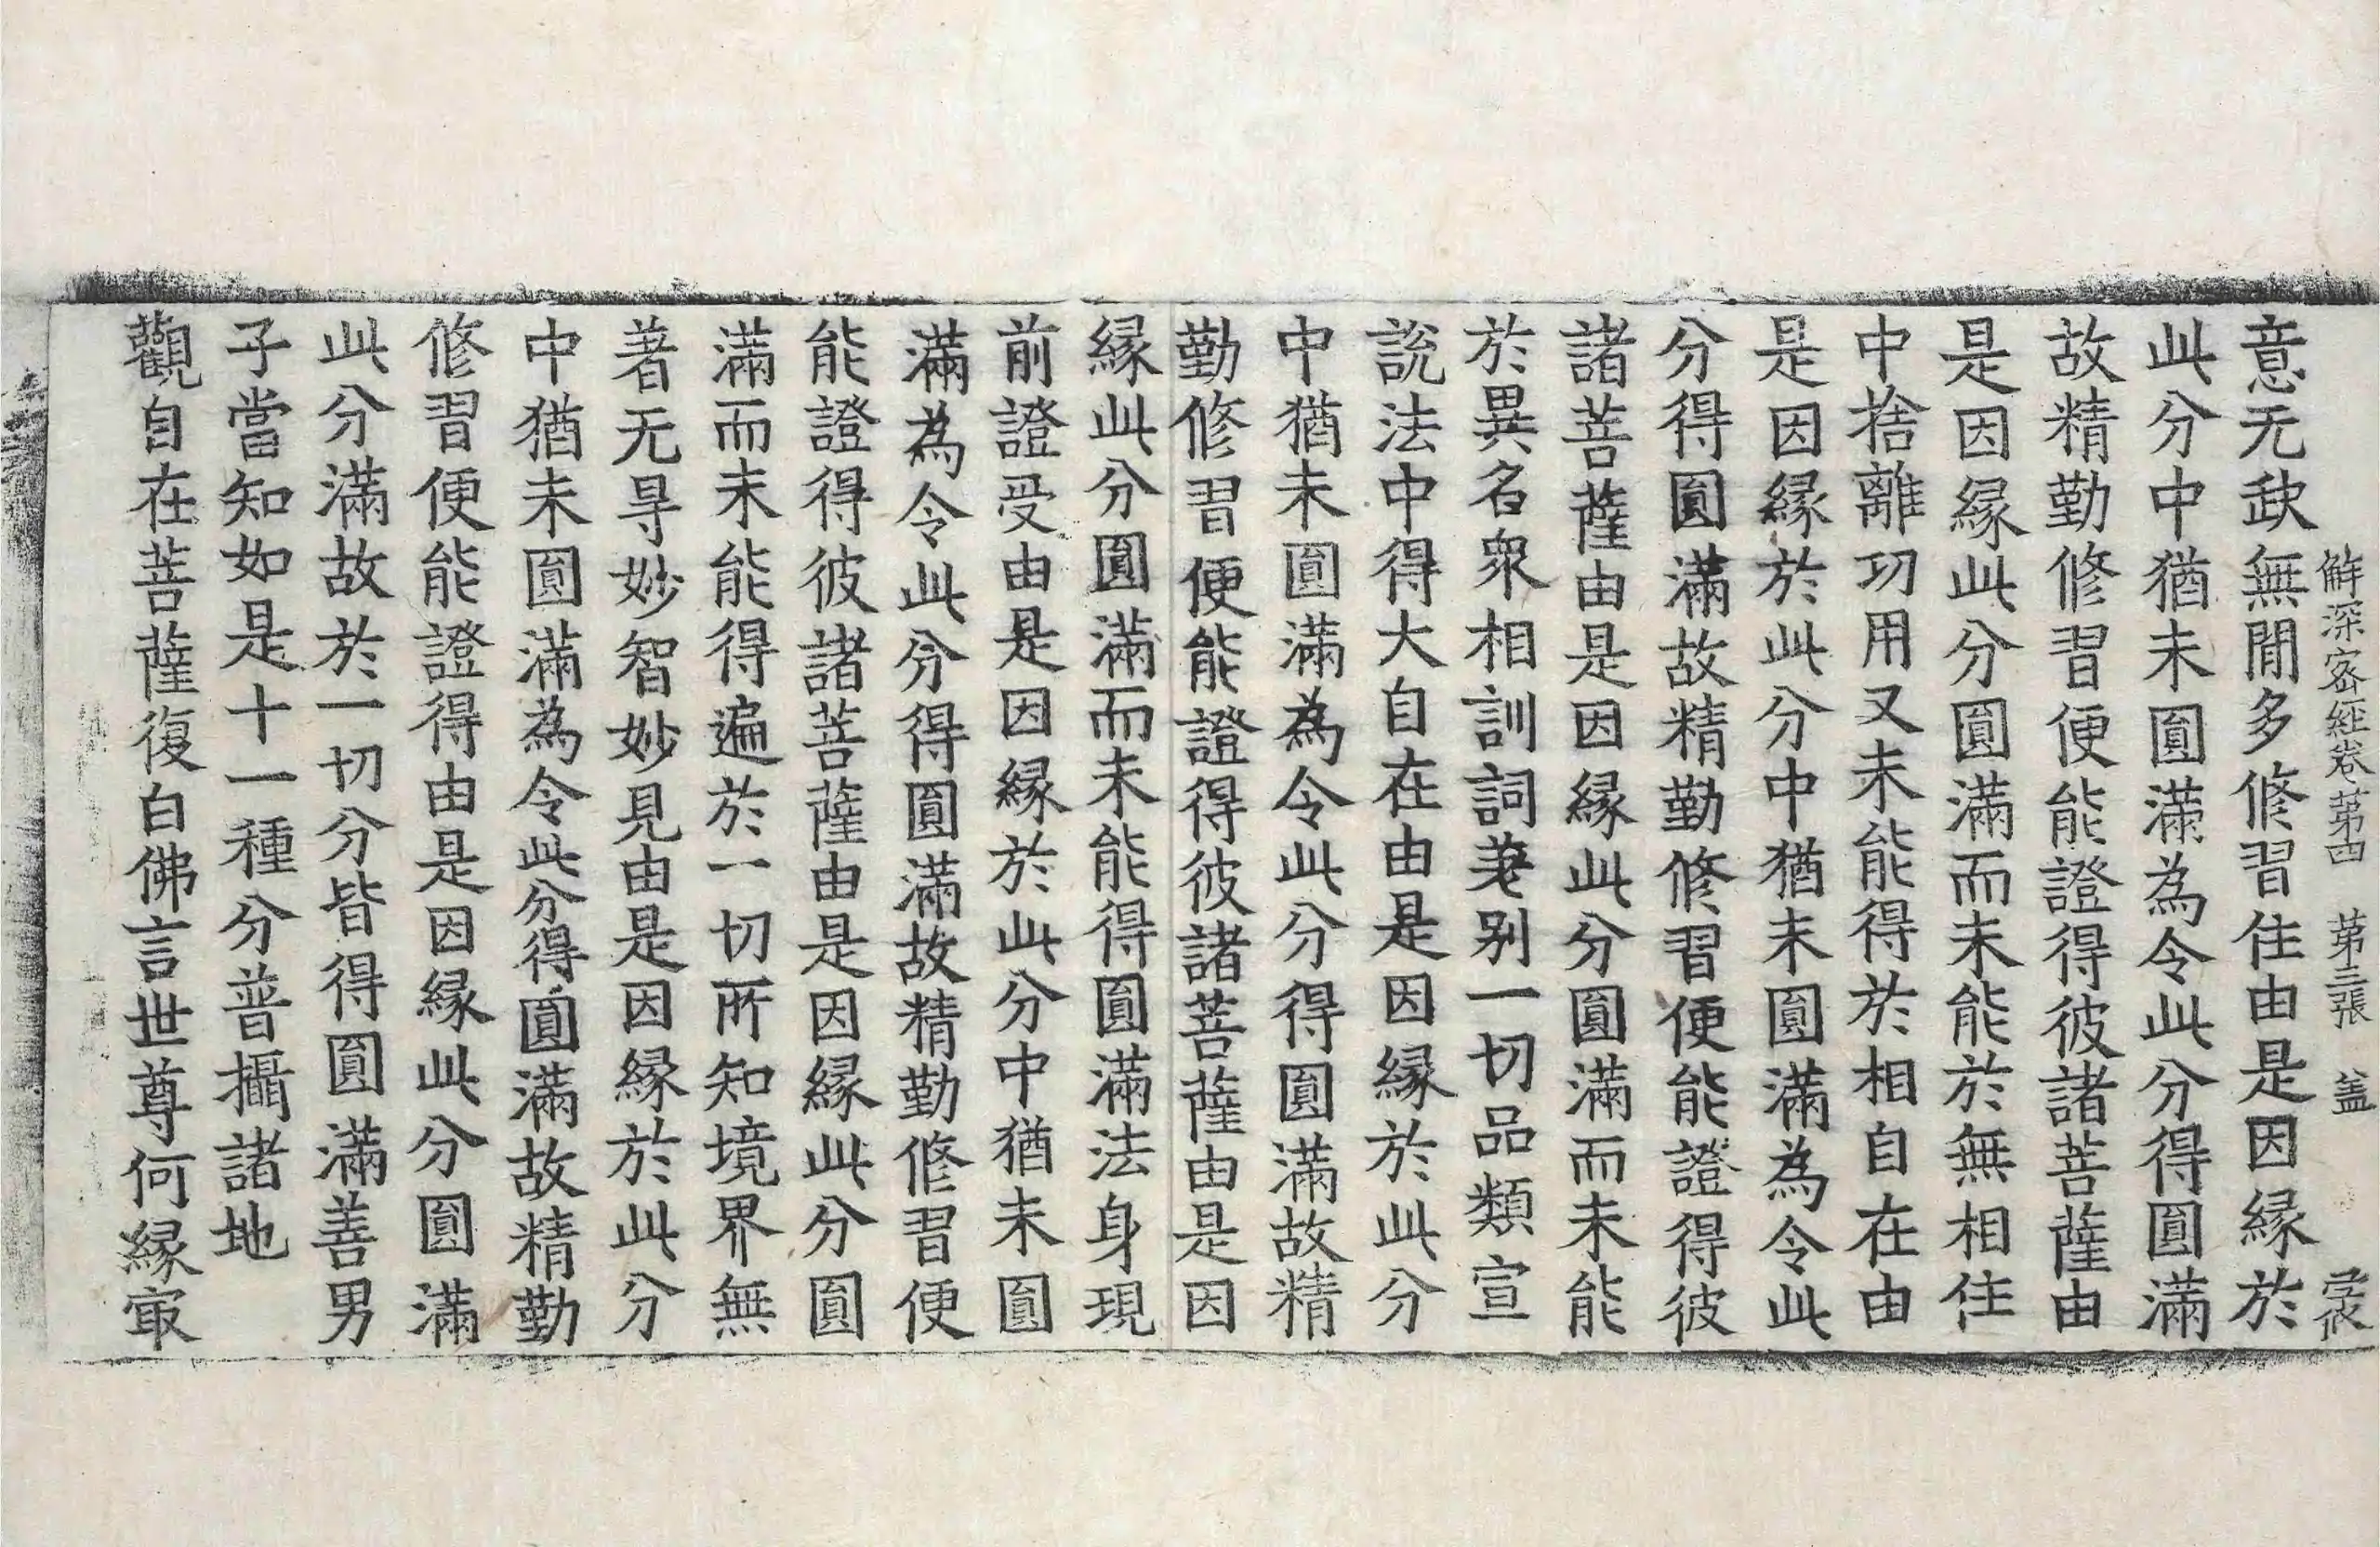 解深密經卷第四 第三張 盖
意无𡙇無閒多修習住由是因縁於
此分中猶未圓滿為令此分得圓滿
故精勤修習便能證得彼諸菩薩由
是因縁此分圓滿而未能於無相住
中捨離功用又未能得於相自在由
是因縁於此分中猶未圓滿為令此
分得圓滿故精勤修習便能證得彼
諸菩薩由是因縁此分圓滿而未能
於異名衆相訓詞差别一切品類宣
說法中得大自在由是因縁於此分
中猶未圓滿為令此分得圓滿故精
勤修習便能證得彼諸菩薩由是因
縁此分圓滿而未能得圓滿法身現
前證受由是因縁於此分中猶未圓
滿為令此分得圓滿故精勤修習便
能證得彼諸菩薩由是因縁此分圓
滿而未能得遍於一切所知境界無
著无㝵妙智妙見由是因縁於此分
中猶未圓滿為令此分得圓滿故精勤
修習便能證得由是因縁此分圓滿
此分滿故於一切分皆得圓滿善男
子當知如是十一種分普攝諸地
觀自在菩薩復白佛言世尊何縁㝡